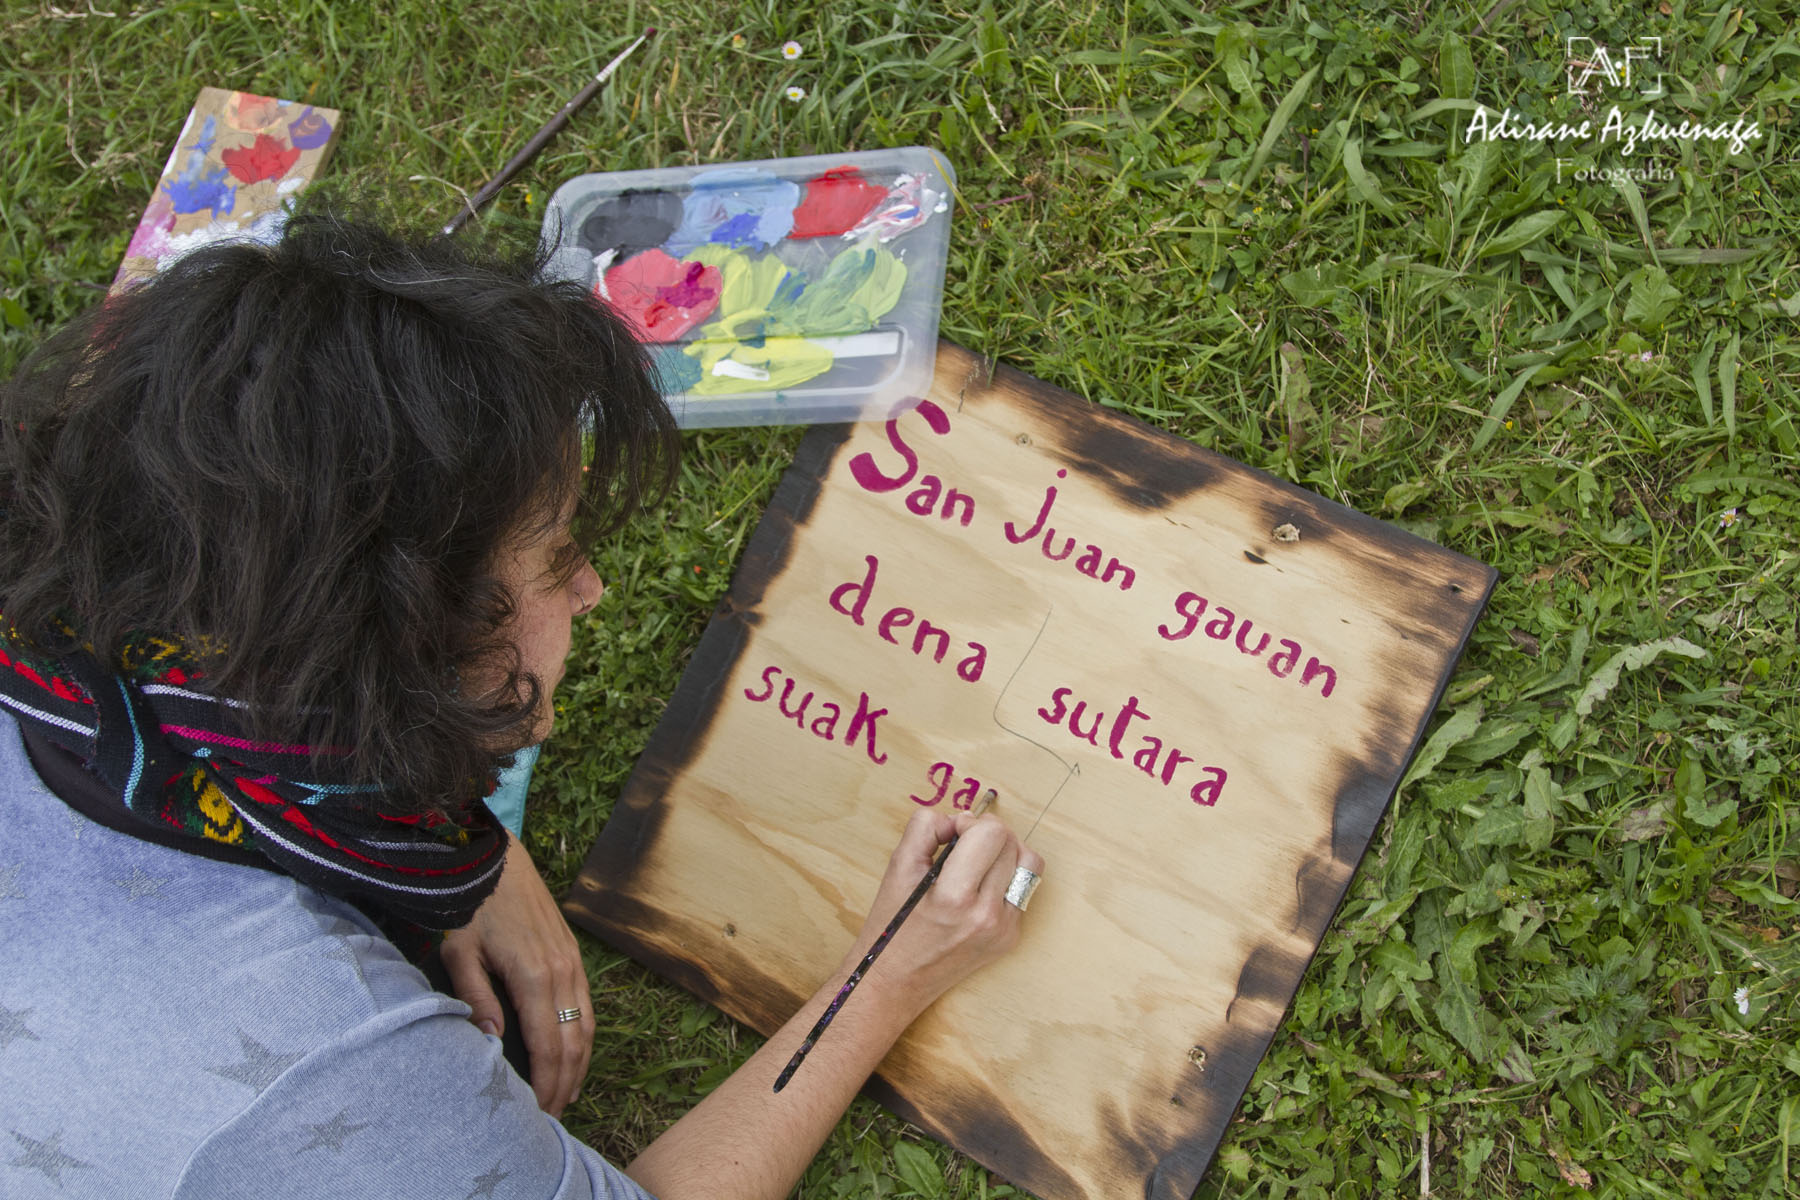 A.F
Adirane Azkuenaga
Fotografia
San juan gauan
dena sutara
suak ga